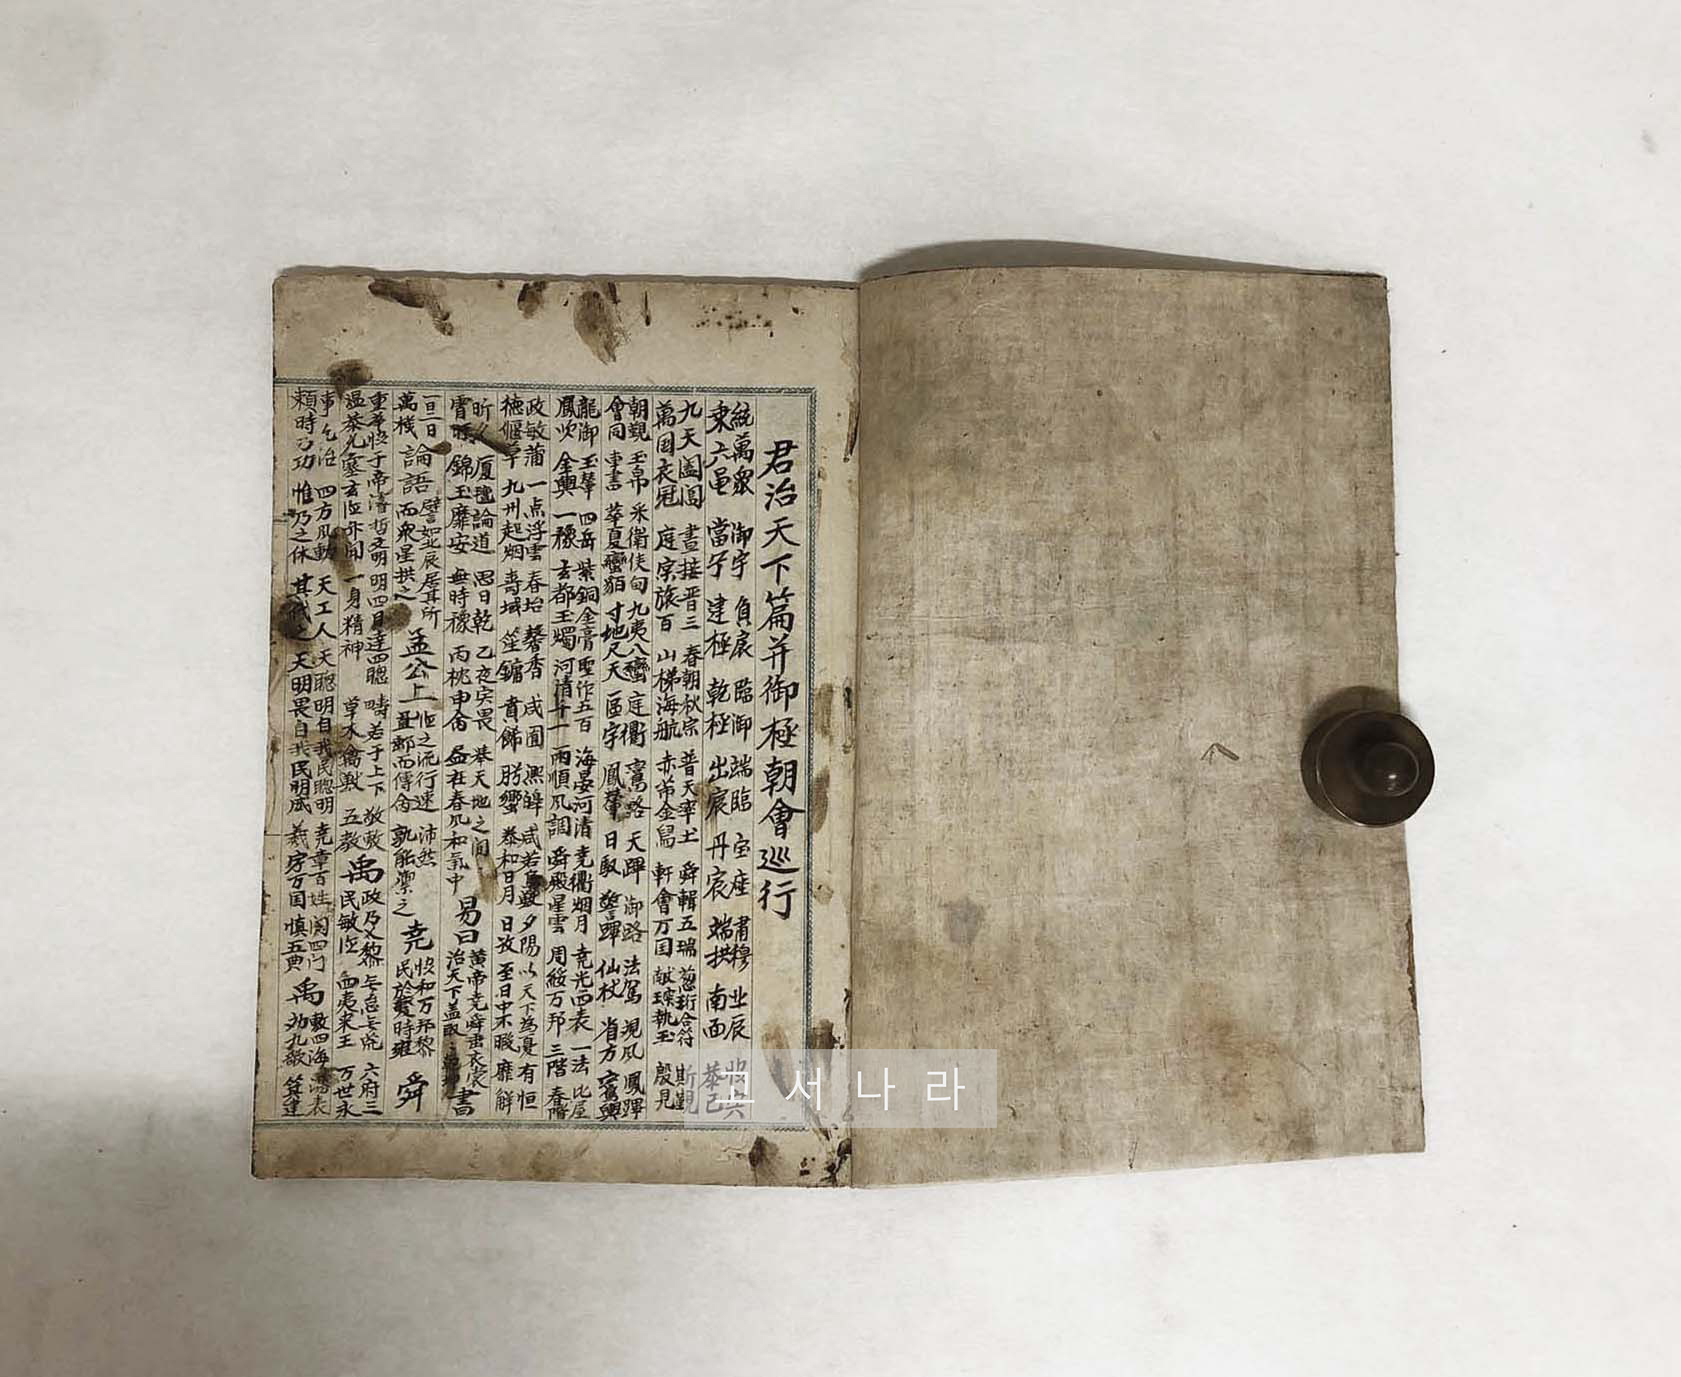 君治天下篇并御極朝會巡行
統萬衆 御宇 負扆 臨御 端臨 宝座 肅穆 北辰
秉六黽 當宁 建極 乾極 出宸 丹宸 端拱 南面 恭己
九天閶闔 晝接晋三 春朝秋宗 普天率土 舜輯五瑞 葱珩合符
萬国衣冠 庭宗旅百 山梯海航 赤芾金舃 軒會万国 執玉 殷見
朝覲 玉帛 采衛侯甸 九夷八蠻 庭衢 鸞路 天蹕 御路 法駕 観風 鳳蹕
會同 車書 華夏蠻貊 寸地尺天 區宇 鳳輦 日馭 警蹕 仙杖 省方 鸞輿
龍御 玉輦 四岳 紫銅金膏 聖作五百 海晏河清 堯衢烟月 堯光四表 一法 比屋
鳳吹 金輿 一豫 玄都玉燭 河清千一 雨順風調 舜殿星雲 周綏万邦 三階 春階
政敏蒲 一点浮雲 春坮 馨香 咸囿 熙皥 咸若鳥獸 夕陽 以天下為憂 有恒
德偃草 九州起烟 壽域 笙鏞 賁飾 肹蠁 泰和日月 日孜 至日中不暇 靡解
昕夕 厦氊論道 四日乾 乙夜宗畏 奉天地之間
宵旰 錦玉靡安 無時豫 丙枕申命 益在春風和氣中 易曰 黄帝堯舜垂衣裳 治天下盖取 書
一日二日 論語 譬如北辰居其所 恒之流行速 沛然 協和万邦黎
萬機 而衆星拱之 孟公上 置郵而傳命 孰能禦之 堯 民於變時雍 舜
重華恊于帝濬哲文明 明四目達四聰 疇若予上下 敬敷 政乃乂黎 無怠無荒 六府三
温恭允塞玄德升聞 一身精神 草木禽獸 五教 禹 民敏德 四夷来王 万世永
事允治 四方風動 天工人 天聰明自我民聰明 堯章百姓 闢四门 敷四海
賴時乃功 惟乃之休 其代之 天明畏自我民明威 羲 万国 慎五典 禹 九叙 箕建
고서나라